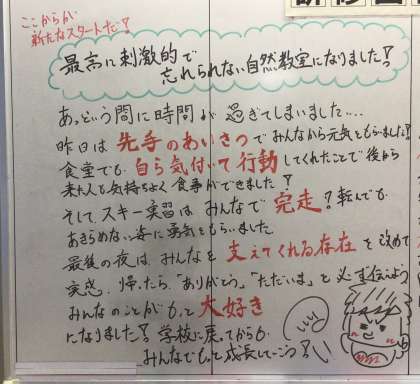 ここからが
新たなスタートだ!
最高に刺激的で
忘れられない自然教室になりました!
あっという間に時間が過ぎてしまいました…
昨日は先手のあいさつでみんなから元気をもらいました!
食堂でも自ら気付いて行動してくれたことで後から
来た人も気持ちよく食事ができました!
そして、スキー実習はみんなで完走!転んでも
あきらめない姿に勇気をもらいました
最後の夜は、みんなを支えてくれる存在を改めて
実感。帰ったら、「ありがとう」「ただいま」を必ず伝えよう
みんなのことがもっと大好き
になりました!学校に戻ってからも
みんなでもっと成長していこう!